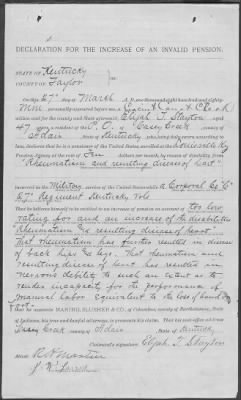 DECLARATION FOR THE INCREASE OF AN INVALID PENSION.
STATE OF Kentucky
COUNTY OF Taylor } ss:
On this 4th day of March A. D. one thousand eight hundred and eighty-
personally appeared before me a Circuit Court Clerk
within and for the county and State aforesaid Elijah T. Slayton, aged
47 years, a resident of P. O. of Casey Creek, county of
Adair, State of Kentucky, who being duly sworn according to
law, declares that he is a pensioner of the United States, enrolled at the Louisville Ky
Pension Agency at the rate of Ten dollars per month, by reason of disability from
"Rheumatism and resulting disease of heart"
incurred in the Military service of the United States while a Corporal Co "C"
27 Regiment Kentucky Vols
That he believes himself to be entitled to an increase of pension on account of too low
rating for and an increase of the disabilities
"Rheumatism and resulting disease of heart"
That rheumatism has further resulted in disease
of back hips & legs. That rheumatism and
resulting disease of heart has resulted in
nervous debility to such an extent as to
render incapacity for the performance of
manual labor equivalent to the loss of hand or
foot.
of Columbus, county of Bartholomew, State
of Indiana, his true and lawful attorneys, to prosecute his claim. That his post-office address is
Casey Creek, county of Adair, State of Kentucky
Claimant's signature: Elijah T. Slayton